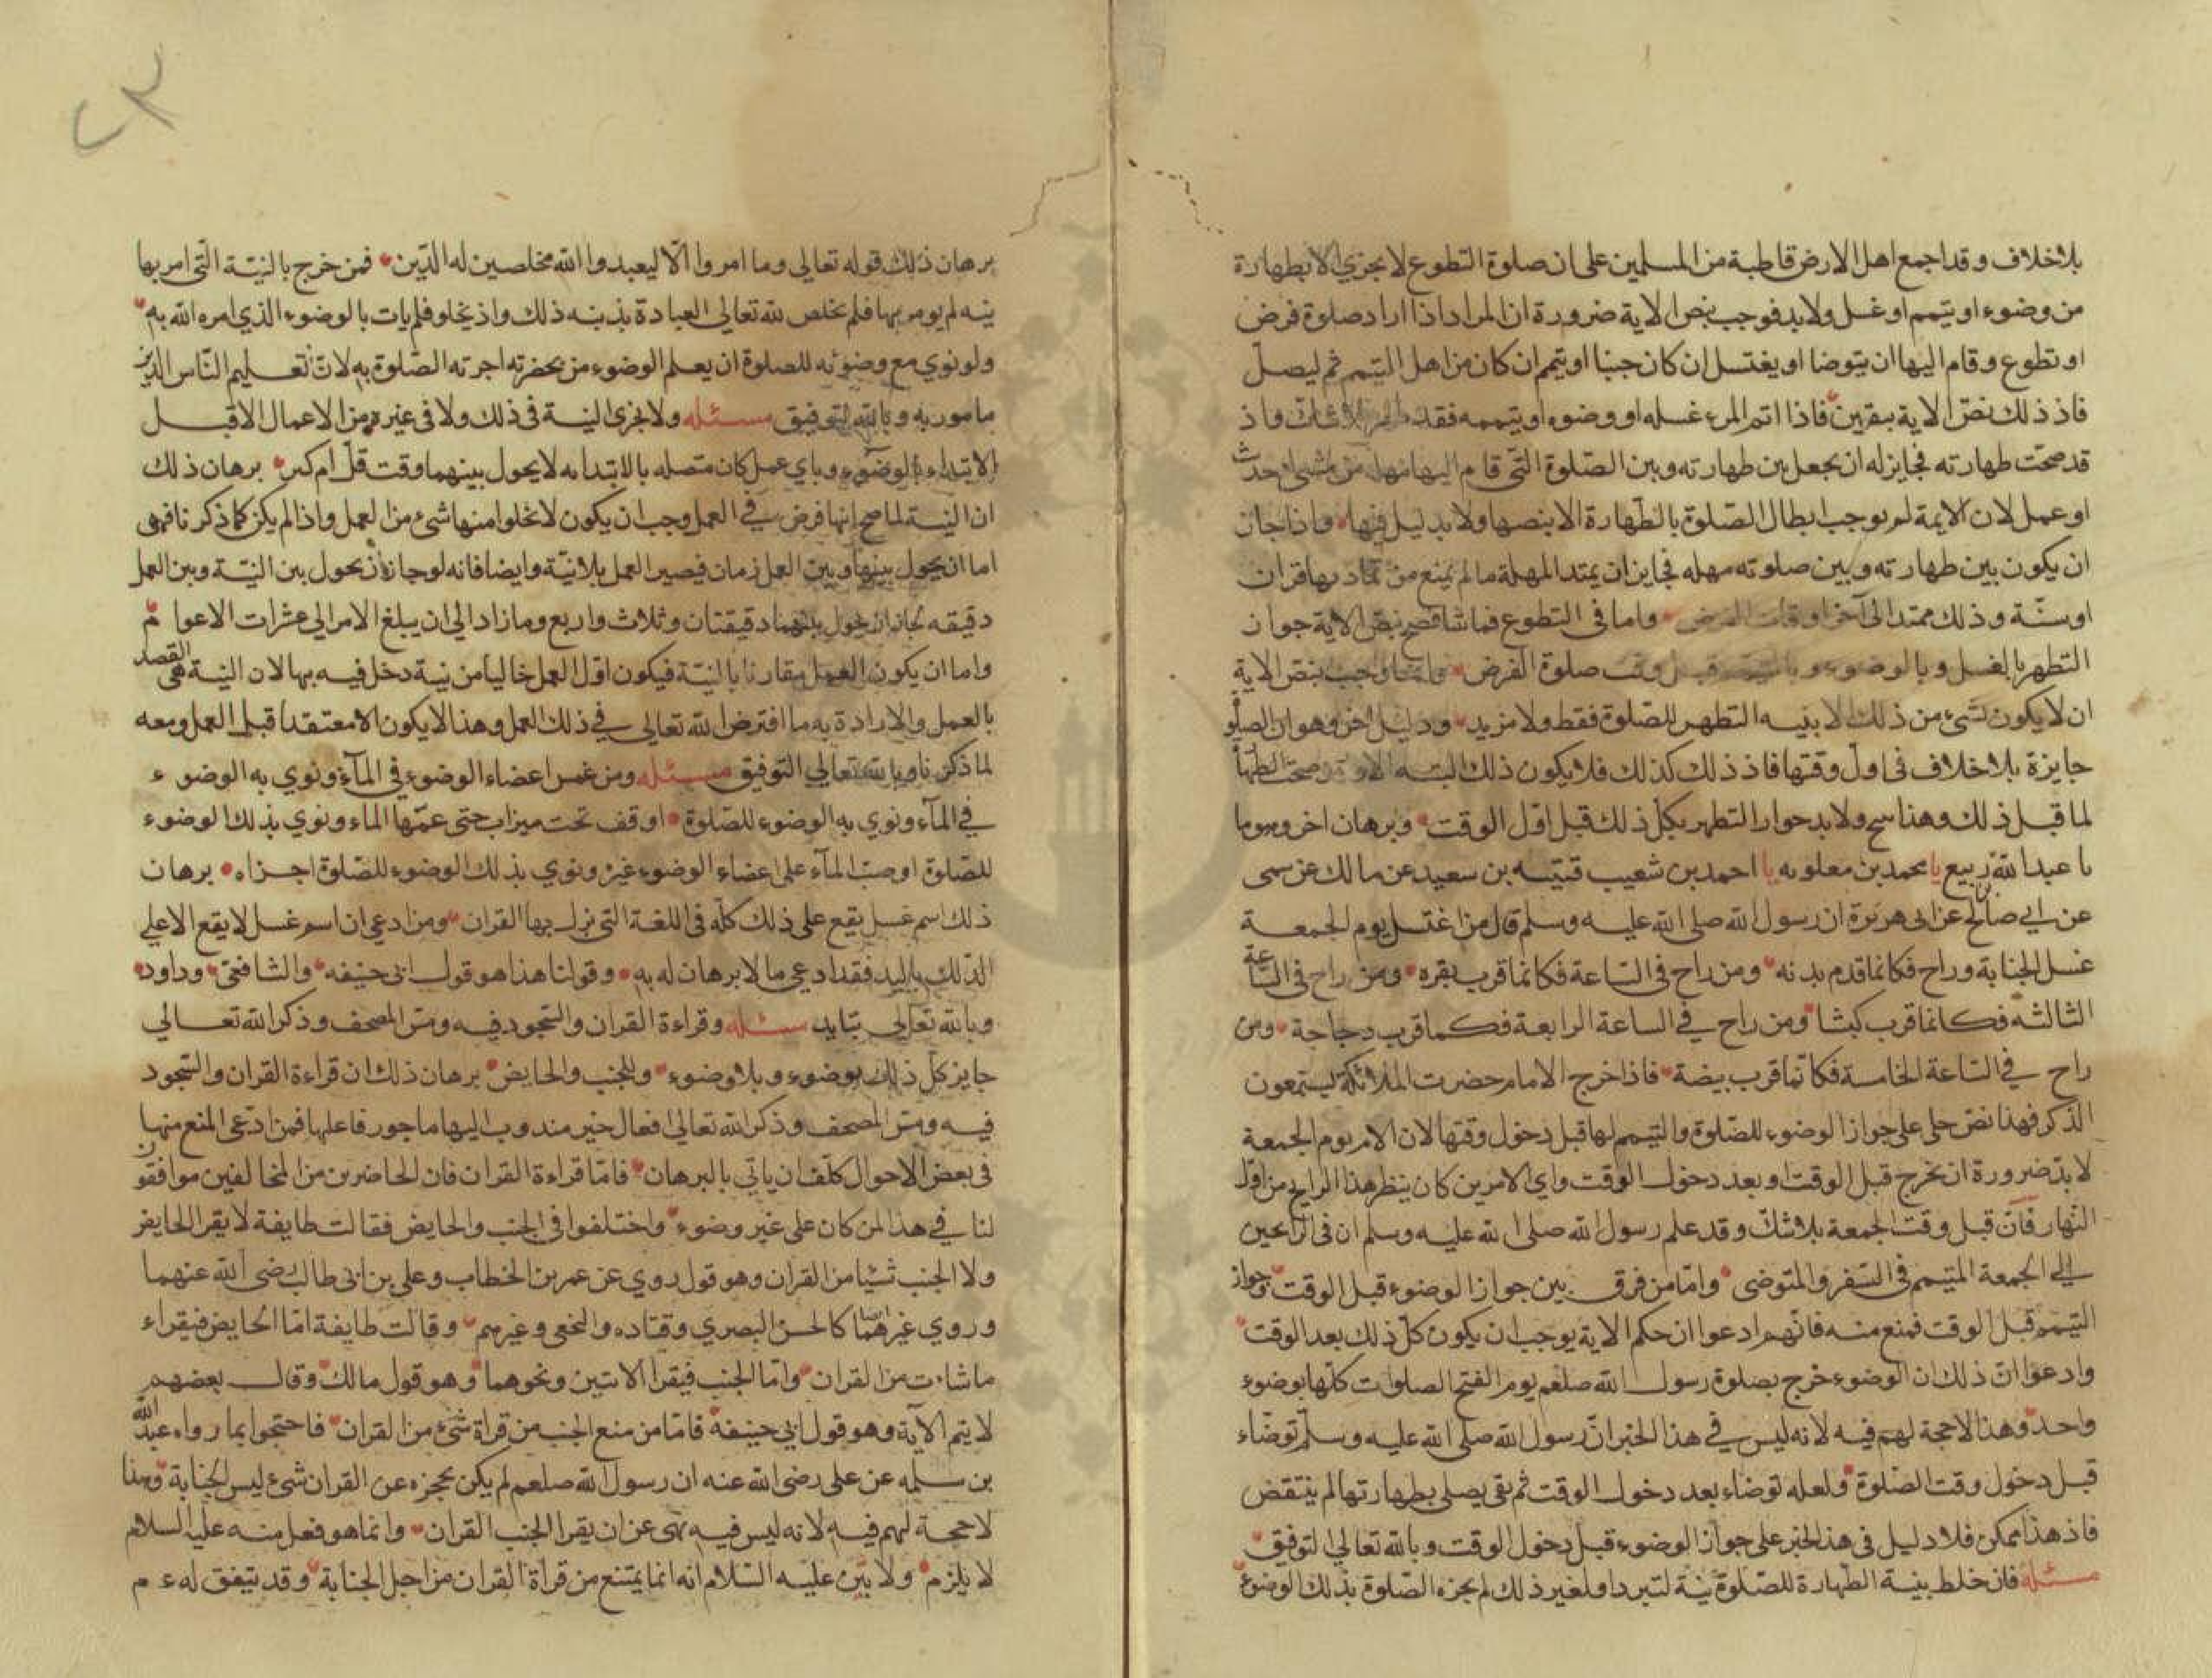 بلاخلاف وقد اجمع اهل الارض قاطبة من المسلمين على ان صلوة التطوع لا يجزي الا بطهارة
من وضوء او تيمم او غسل ولابد فوجب بنص الاية ضرورة ان المراد اذا اراد صلوة فرض
او تطوع وقام اليها ان يتوضا او يغتسل ان كان جنبا او تيمم ان كان من اهل التيمم ثم ليصل
فاذ ذلك نص الاية بيقين فاذا اتم المرء غسله او وضوه او يتيممه فقد طهر بلا شك واذ
قد صحت طهارته فجايز له ان يجعل بين طهارته وبين الصلوة التي قام اليها مهلة من مشي او حدث
او عمل لان الاية لم يوجب ابطال الصلوة بالطهارة الا بنصها ولا بدليل فيها واذا جاز
ان يكون بين طهارته وبين صلوته مهله فجايز ان يمتد المهلة ما لم يمنع من تماديها قران
او سنة وذلك ممتد الى آخر اوقات الفرض واما في التطوع فما شا فصح بنص الاية جواز
التطهر بالغسل وبالوضوء وبالتيمم قبل وقت صلوة الفرض وانما وجب بنص الاية
ان لا يكون شيء من ذلك الا بنيه التطهر للصلوة فقط ولا مزيد ودليل اخر وهو ان الصلو
جايزة بلا خلاف في اول وقتها فاذ ذلك كذلك فلا يكون ذلك البته الا وقد صحت الطها
لما قبل ذلك وهذا ينتج ولابد جواز التطهر بكل ذلك قبل اول الوقت وبرهان اخر وهو ما
نا عبد الله ربيع نا محمد بن معلويه نا احمد بن شعيب قتيبه بن سعيد عن مالك عن سمى
عن ابي صالح عن ابي هريرة ان رسول الله صلى الله عليه وسلم قال من اغتسل يوم الجمعة
غسل الجنابة وراح فكانما قدم بدنه ومن راح في الساعة فكانما قرب بقره ومن راح في الساعة
الثالثه فكانما قرب كبشا ومن راح في الساعة الرابعة فكمما قرب دجاجة ومن
راح في الساعة الخامسة فكانما قرب بيضة فاذا خرج الامام حضرت الملائكة ليستمعون
الذكر فهذا نص جلي على جواز الوضوء للصلوة والتيمم لها قبل دخول وقتها لان الامر يوم الجمعة
لابد ضرورة ان يخرج قبل الوقت او بعد دخول الوقت واي الامرين كان ينظر هذا الرايح من اول
النهار فان قبل وقت الجمعة بلا شك وقد علم رسول الله صلى الله عليه وسلم ان في الرائحين
الي الجمعة المتيمم في السفر والمتوضى واما من فرق بين جواز الوضوء قبل الوقت وجواز
التيمم قبل الوقت فمنع منه فانهم ادعوا ان حكم الاية يوجب ان يكون كل ذلك بعد الوقت
وادعوا ان ذلك ان الوضوء خرج بصلوة رسول الله صلعم يوم الفتح الصلوات كلها بوضوء
واحد وهذا لا حجة لهم فيه لانه ليس في هذا الخبر ان رسول الله صلى الله عليه وسلم توضاء
قبل دخول وقت الصلوة ولعله توضاء بعد دخول الوقت ثم بقى يصلي بطهارتها لم ينتقض
فاذ هذا ممكن فلا دليل في هذا الخبر على جواز الوضوء قبل دخول الوقت وبالله تعالي التوفيق
مسئله فان خلط بنية الطهارة للصلوة نية لتبرد او لغير ذلك لم يجزه الصلوة بذلك الوضوء
برهان ذلك قوله تعالي وما امروا الا ليعبدوا الله مخلصين له الدين فمن خرج بالنية التي امر بها
بنيه لم يومر بها فلم يخلص لله تعالي العبادة بذنبه ذلك واذ يخلو فلم يات بالوضوء الذي امره الله به
ولو نوي مع وضوئه للصلوة ان يعلم الوضوء من بحضرته اجزته الصلوة به لان تعليم الناس الدين
مامور به وبالله التوفيق مسئله ولا يجزي النية في ذلك ولا في غيره من الاعمال الا قبل
الابتداء بالوضوء وباي عمل كان متصله بالابتدا به لا يحول بينهما وقت قل ام كبر برهان ذلك
ان النية لما صح انها فرض في العمل وجب ان يكون لا تخلوا منها شيء من العمل واذا لم يكن كما ذكرنا فهي
اما ان يحول بينها وبين العمل زمان فيصير العمل بلا نية وايضا فانه لو جاز ان يحول بين النية وبين العمل
دقيقه لجاز ان يحول بينهما دقيقتان وثلاث واربع وما زاد الي ان يبلغ الامر الى عشرات الاعوام
واما ان يكون العمل مقارنا بالنية فيكون اول العمل خاليا من نية دخل فيه بها لان النية هي القصد
بالعمل والارادة به ما افترض الله تعالى في ذلك العمل وهذا لا يكون الا معتقدا قبل العمل ومعه
لما ذكرنا وبالله تعالي التوفيق مسئله ومن غمس اعضاء الوضوء في المآء ونوي به الوضوء
في المآء ونوي به الوضوء للصلوة او وقف تحت ميزاب حتى عمها الماء ونوي بذلك الوضوء
للصلوة او صب المآء على اعضاء الوضوء غيره ونوي بذلك الوضوء للصلوة اجزاه برهان
ذلك اسم غسل يقع على ذلك كله في اللغة التي نزل بها القران ومن ادعي ان اسم غسل لا يقع الا علي
الدلك باليد فقد ادعي ما لا برهان له به وقولنا هذا هو قول ابي حنيفه والشافعي وداود
وبالله تعالي نتايد مسئله وقراءة القران والسجود فيه ومس المصحف وذكر الله تعالي
جايز كل ذلك بوضوء وبلا وضوء وللجنب والحايض برهان ذلك ان قراءة القران والسجود
فيه ومس المصحف وذكر الله تعالي افعال خير مندوب اليها ماجور فاعلها فمن ادعى المنع منها
في بعض الاحوال كلف ان ياتي بالبرهان فاما قراءة القران فان الحاضرين من المخالفين موافقون
لنا في هذا لمن كان على غير وضوء واختلفوا في الجنب والحايض فقالت طايفة لا يقرا الحايض
ولا الجنب شيئا من القران وهو قول روي عن عمر بن الخطاب وعلي بن ابي طالب رضى الله عنهما
وروي غيرهما كالحسن البصري وقتاده والنخعي وغيرهم وقالت طايفة اما الحايض فيقراء
ما شاءت من القران واما الجنب فيقرا الايتين ونحوهما وهو قول مالك وقال بعضهم
لا يتم الآية وهو قول ابي حنيفة فاما من منع الجنب من قراة شيء من القران فاحتجوا بما رواه عبد الله
بن سلمه عن على رضى الله عنه ان رسول الله صلعم لم يكن يحجزه عن القران شيء ليس الجنابة وهذا
لا حجة لهم فيه لانه ليس فيه نهى عن ان يقرا الجنب القران وانما هو فعل منه عليه السلام
لا يلزم ولا بين عليه السلام انه انما يمتنع من قراة القران من اجل الجنابة وقد يتفق له ع م